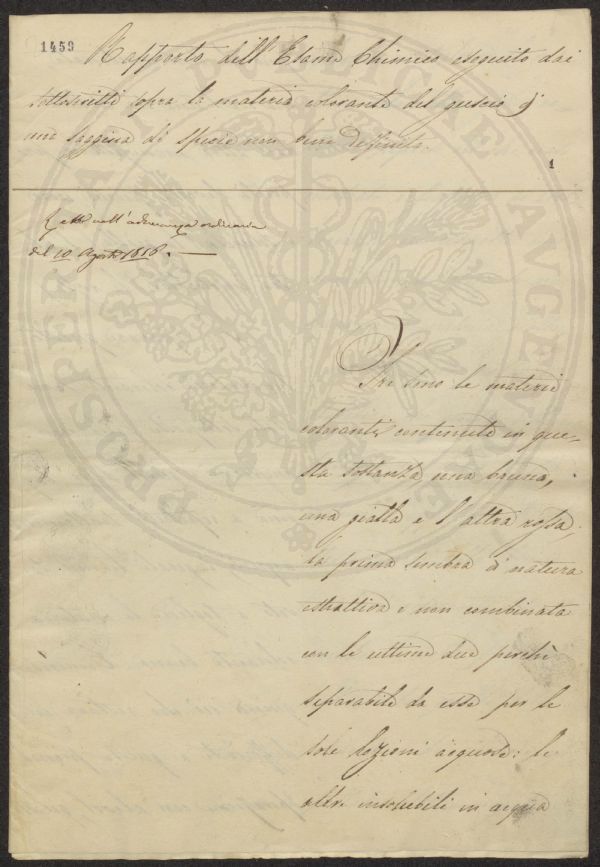 1459
Rapporto dell'Esame Chimico eseguito dai
sottoscritti sopra la materia colorante del guscio di
una saggina di specie non ben definita.
1
Letto nell'adunanza ordinaria
del 10 Agosto 1818. —
Tre sono le materie
coloranti contenute in que-
sta sostanza una bruna,
una gialla e l'altra rossa,
la prima sembra di natura
estrattiva e non combinata
con le ultime due perchè
separabile da esse per le
sole lozioni acquose: le
altre insolubili in acqua
PROSPERITATI PUBLICAE AVGENDAE